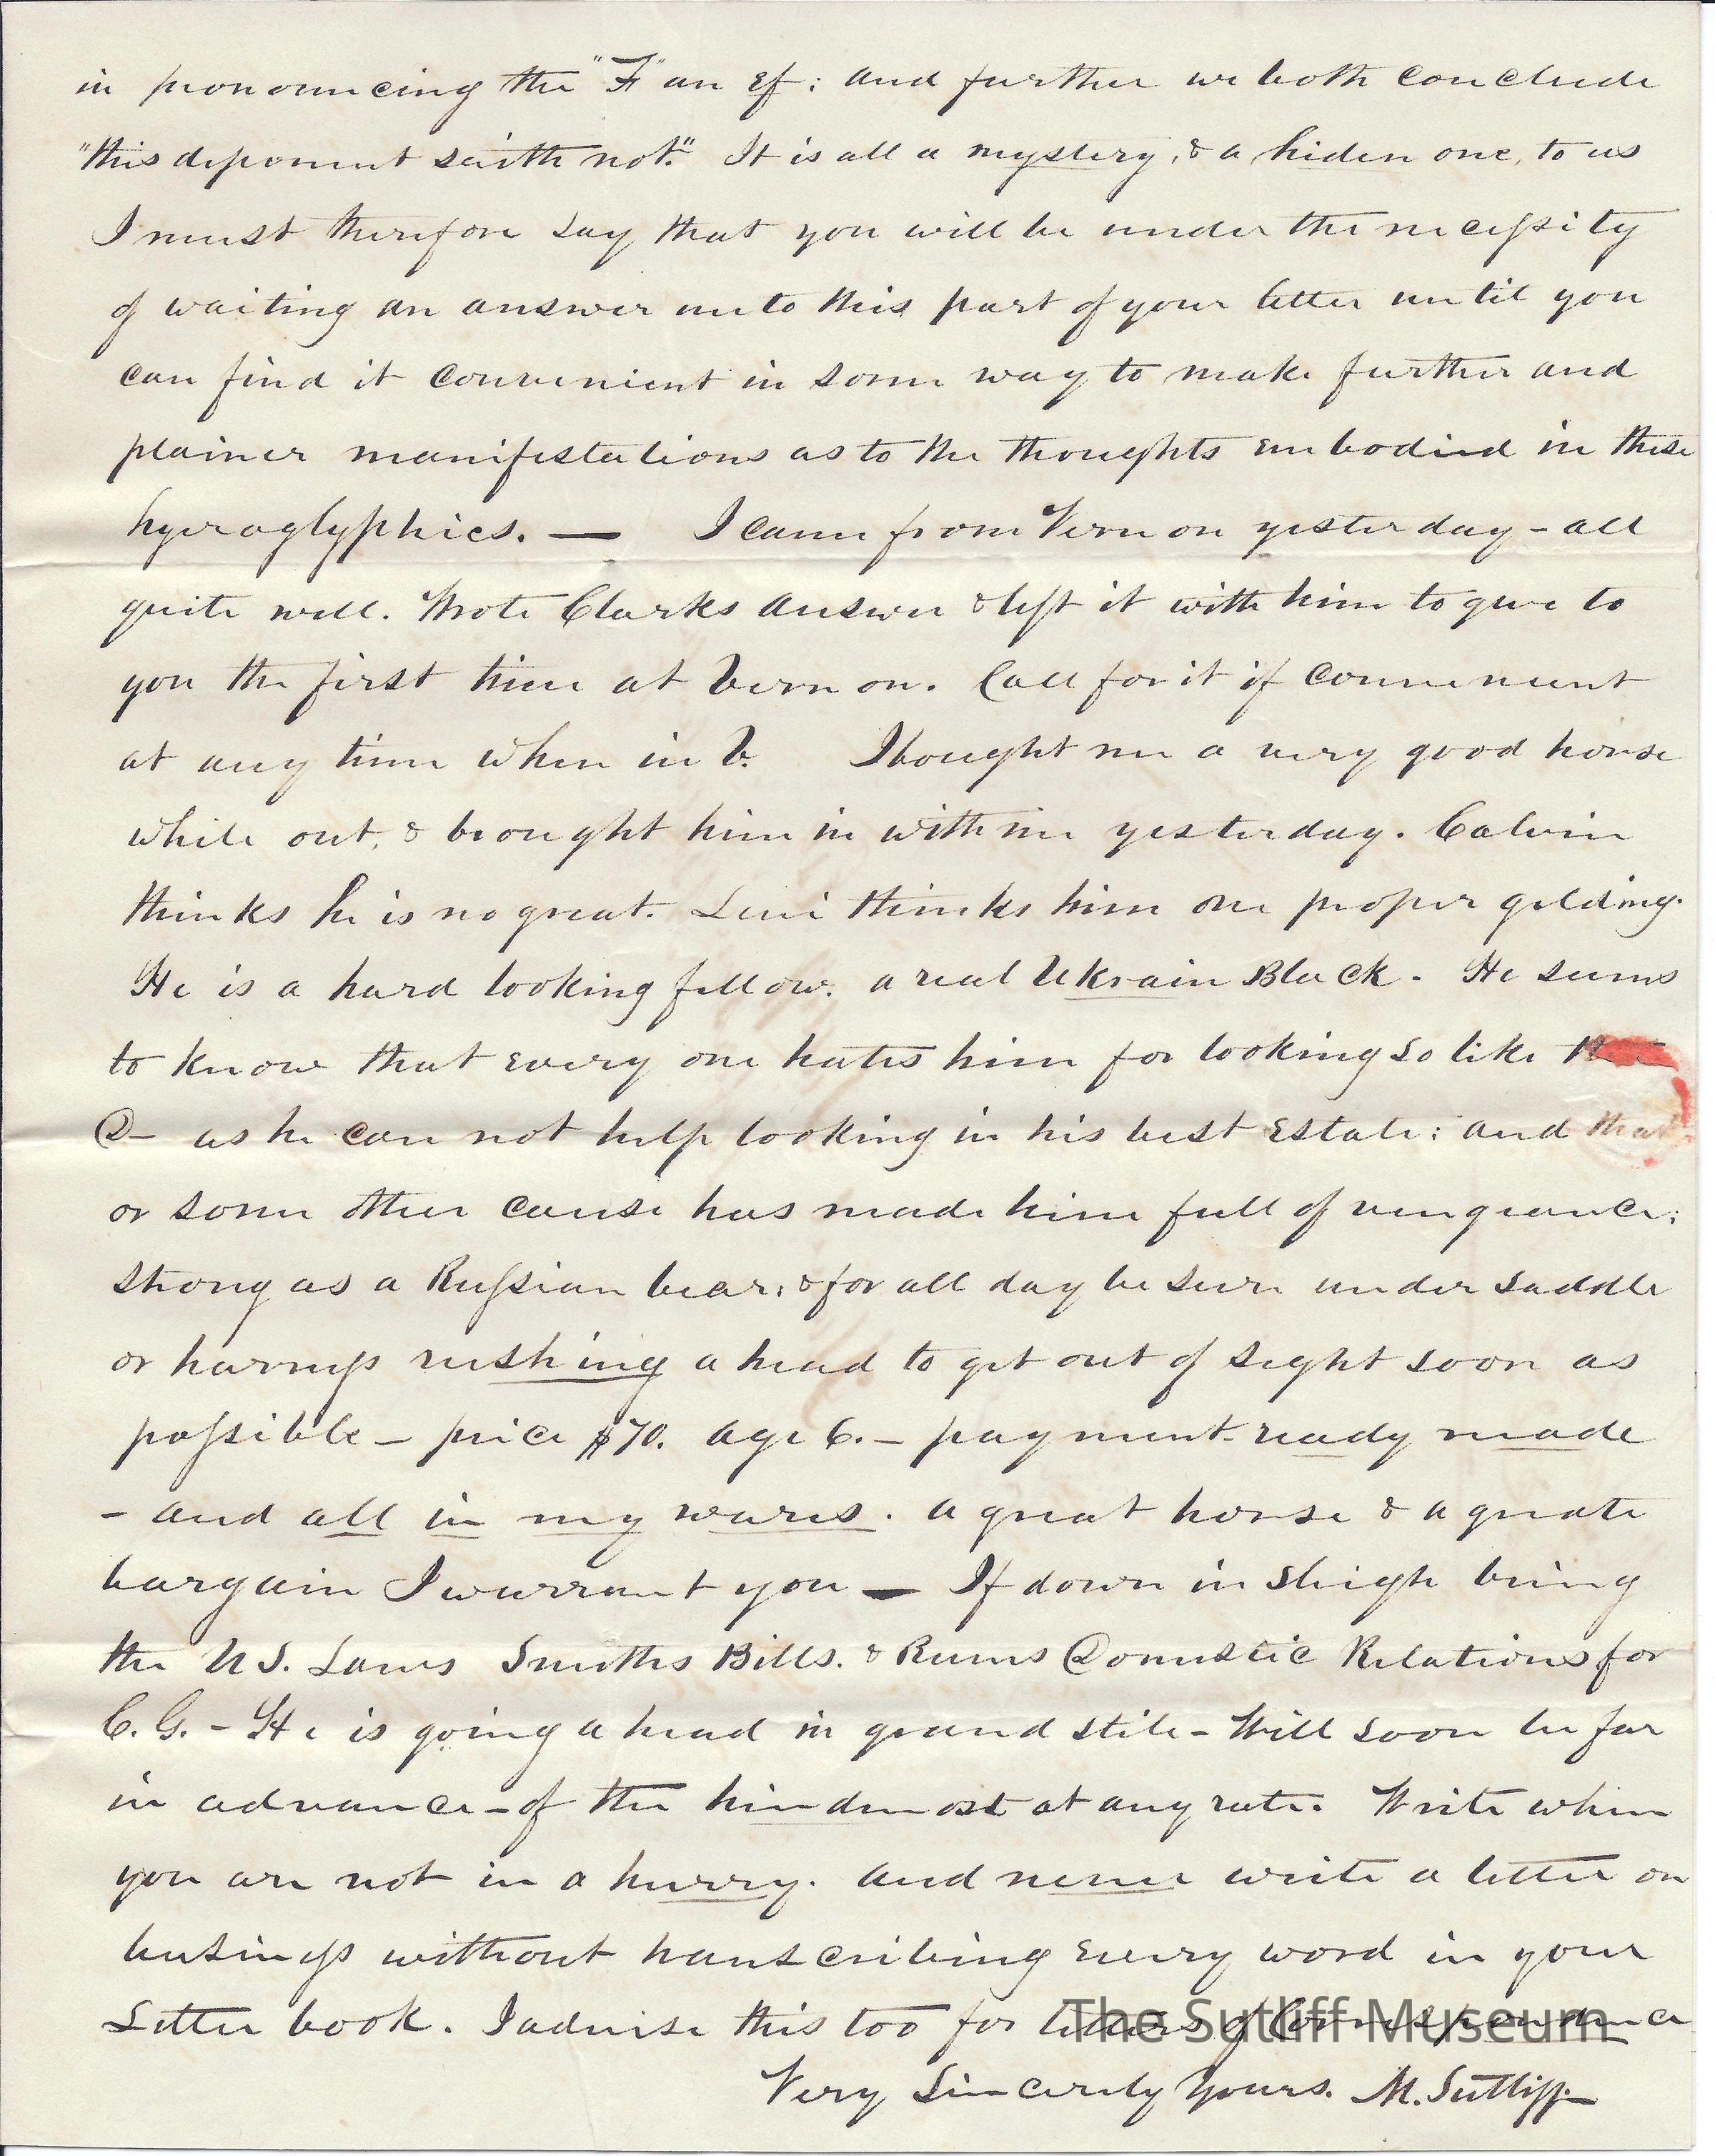 in pronouncing the "F" an Ef: and further we both conclude
"this deponent saith not." It is all a mystery, & a hiden one, to us
I must therefore say that you will be under the necessity
of waiting an answer unto this part of your letter until you
can find it convenient in some way to make further and
plainer manifestations as to the thoughts embodied in these
hyeroglyphics. — I came from Vernon yesterday - all
quite well. Wrote Clarks answer & left it with him to give to
you the first time at Vernon. Call for it if convenient
at any time when in V. I bought me a very good horse
while out, & brought him in with me yesterday. Calvin
thinks he is no great. Levi thinks him one proper gelding.
He is a hard looking fellow. a real Ukrain Black. He seems
to know that every one hates him for looking so like
D— as he can not help looking in his best Estate: and that
or some other cause has made him full of vengeance;
strong as a Russian bear; & for all day be sure under saddle
or harness rushing ahead to get out of sight soon as
possible — price $70. age 6. — payment ready made
- and all in my wares. a great horse & a greate
bargain I warrant you — If down in sleigh bring
the U S. Laws Smiths Bills. & Reeves Domestic Relations for
C. G. - He is going ahead in grand stile - Will soon be far
in advance - of the hindmost at any rate. Write when
you are not in a hurry. and never write a letter on
business without transcribing every word in your
Letter book. I advise this too for letters of Correspondence
The Sutliff Museum
Very Sincerely Yours. M. Sutliff